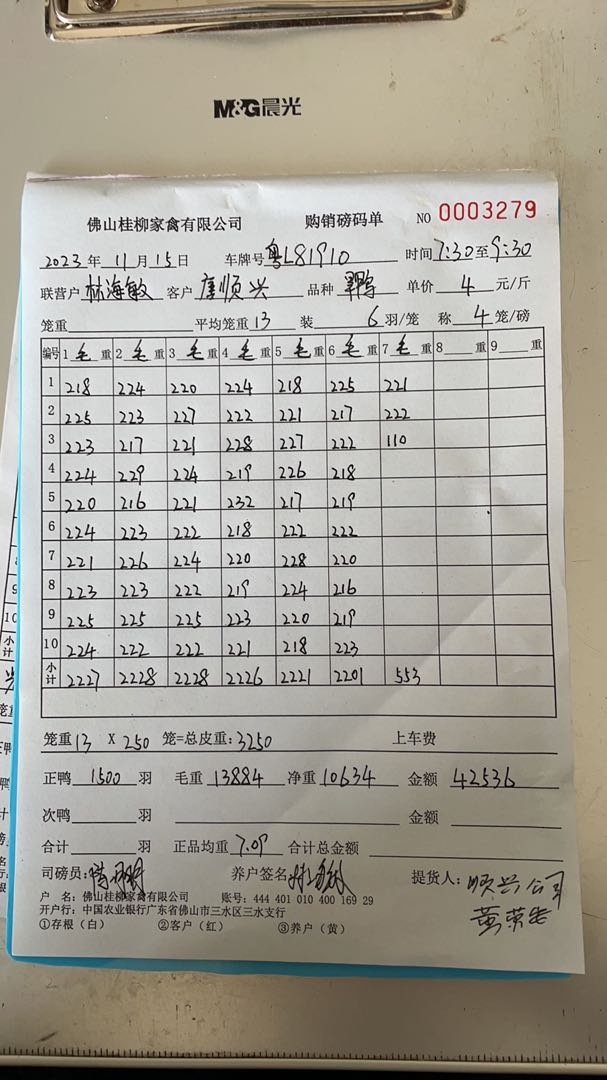 M&G晨光
佛山桂柳家禽有限公司 购销磅码单 NO 0003279
2023年11月15日 车牌号粤L81910 时间7:30至9:30
联营户林海敏 客户唐顺兴 品种 单价4元/斤
笼重 平均笼重13 装6羽/笼 称4笼/磅
编号 1毛重 2毛重 3毛重 4毛重 5毛重 6毛重 7毛重 8重 9重
1 218 224 220 224 218 225 221
2 225 223 227 222 221 217 222
3 223 217 221 228 227 222 110
4 224 229 224 219 226 218
5 220 216 221 232 217 219
6 224 223 222 218 222 222
7 221 226 224 220 228 220
8 223 223 222 219 224 216
9 225 225 225 223 220 219
10 224 222 222 221 218 223
小计 2227 2228 2228 2226 2221 2201 553
笼重13 X 250 笼=总皮重:3250 上车费
正鸭1500羽 毛重13884 净重10634 金额42536
次鸭 羽 金额
合计 羽 正品均重7.09 合计总金额
司磅员: 养户签名 提货人:顺兴公司
户 名:佛山桂柳家禽有限公司 账号:444 401 010 400 169 29
开户行:中国农业银行广东省佛山市三水区三水支行
①存根(白) ②客户(红) ③养户(黄)